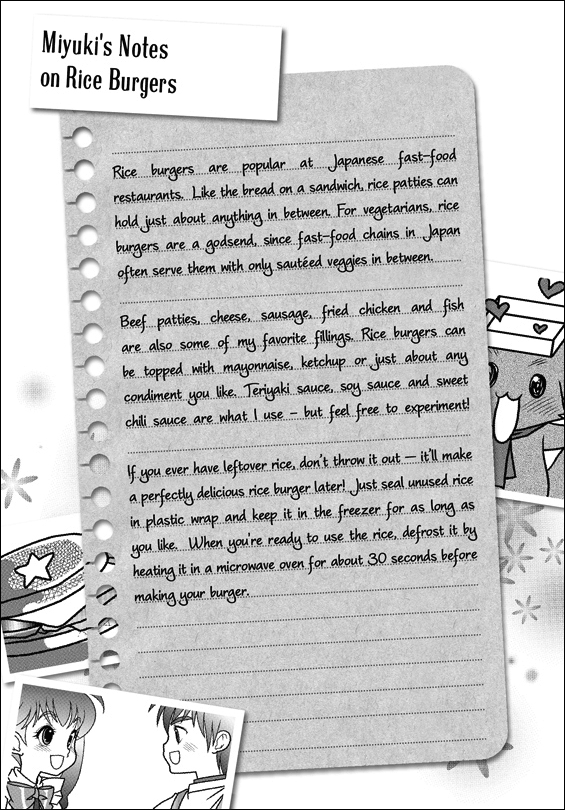 Miyuki's Notes
on Rice Burgers
Rice burgers are popular at Japanese fast-food
restaurants. Like the bread on a sandwich, rice patties can
hold just about anything in between. For vegetarians, rice
burgers are a godsend, since fast-food chains in Japan
often serve them with only sautéed veggies in between.
Beef patties, cheese, sausage, fried chicken and fish
are also some of my favorite fillings. Rice burgers can
be topped with mayonnaise, ketchup or just about any
condiment you like. Teriyaki sauce, soy sauce and sweet
chili sauce are what I use – but feel free to experiment!
If you ever have leftover rice, don't throw it out — it'll make
a perfectly delicious rice burger later! Just seal unused rice
in plastic wrap and keep it in the freezer for as long as
you like. When you're ready to use the rice, defrost it by
heating it in a microwave oven for about 30 seconds before
making your burger.